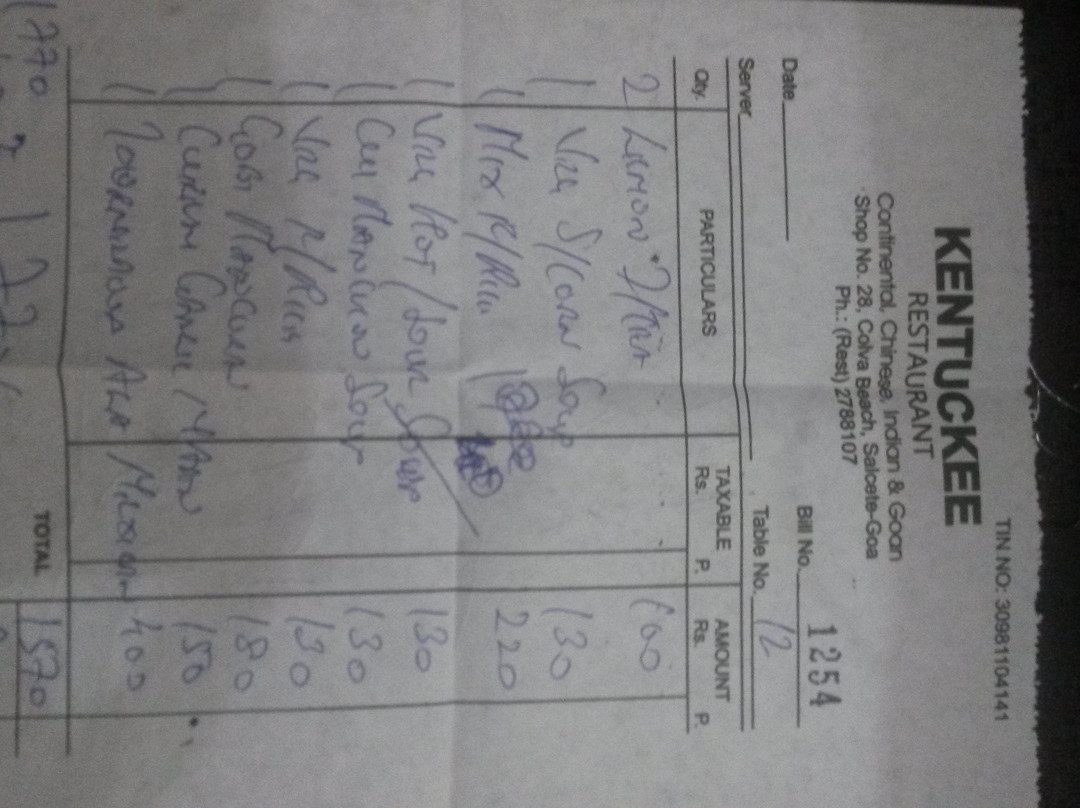 TIN NO: 30981104141
KENTUCKEE
RESTAURANT
Continental, Chinese, Indian & Goan
Shop No. 28, Colva Beach, Salcete-Goa
Ph.: (Rest) 2788107
Bill No. 1254
Date
Table No. 12
Server
Qty. PARTICULARS TAXABLE Rs. P. AMOUNT Rs. P.
2 100
1 Veg S/Corn Soup 130
1 Mix R/Rice 220
1 Veg Hot/Sour Soup 130
1 Manchow Soup 130
1 Veg R/Rice 130
1 Gobi Manchurn 180
1 Garlic Naan 150
1 400
TOTAL 1570
1770